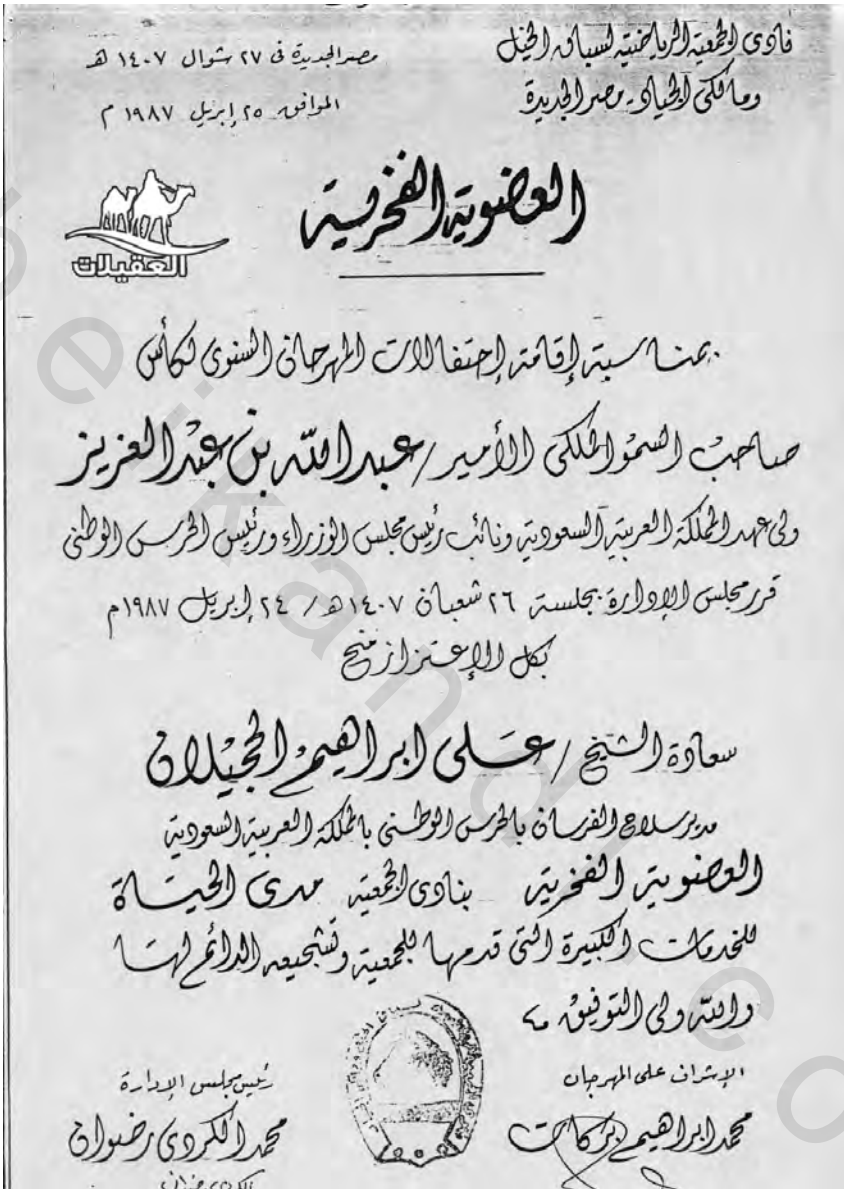 نادى الجمعية الرياضية لسباق الخيل
ومالكى الجياد - مصر الجديدة
مصر الجديدة فى ٢٧ شوال ١٤٠٧ هـ
الموافق ٢٥ إبريل ١٩٨٧ م
العضوية الفخرية
العقيلات
بمناسبة إقامة إحتفالات المهرجان السنوى لكأس
صاحب السمو الملكى الأمير / عبد الله بن عبد العزيز
ولى عهد المملكة العربية السعودية ونائب رئيس مجلس الوزراء ورئيس الحرس الوطنى
قرر مجلس الإدارة بجلسة ٢٦ شعبان ١٤٠٧ هـ / ٢٤ إبريل ١٩٨٧ م
بكل الإعتزاز منح
سعادة الشيخ / على ابراهيم الجيلان
مدير سلاح الفرسان بالحرس الوطنى بالمملكة العربية السعودية
العضوية الفخرية بنادى الجمعية مدى الحياة
للخدمات الكبيرة التى قدمها للجمعية وتشجيعه الدائم لها
والله ولى التوفيق
الإشراف على المهرجان
محمد ابراهيم بركات
رئيس مجلس الإدارة
محمد الكردى رضوان